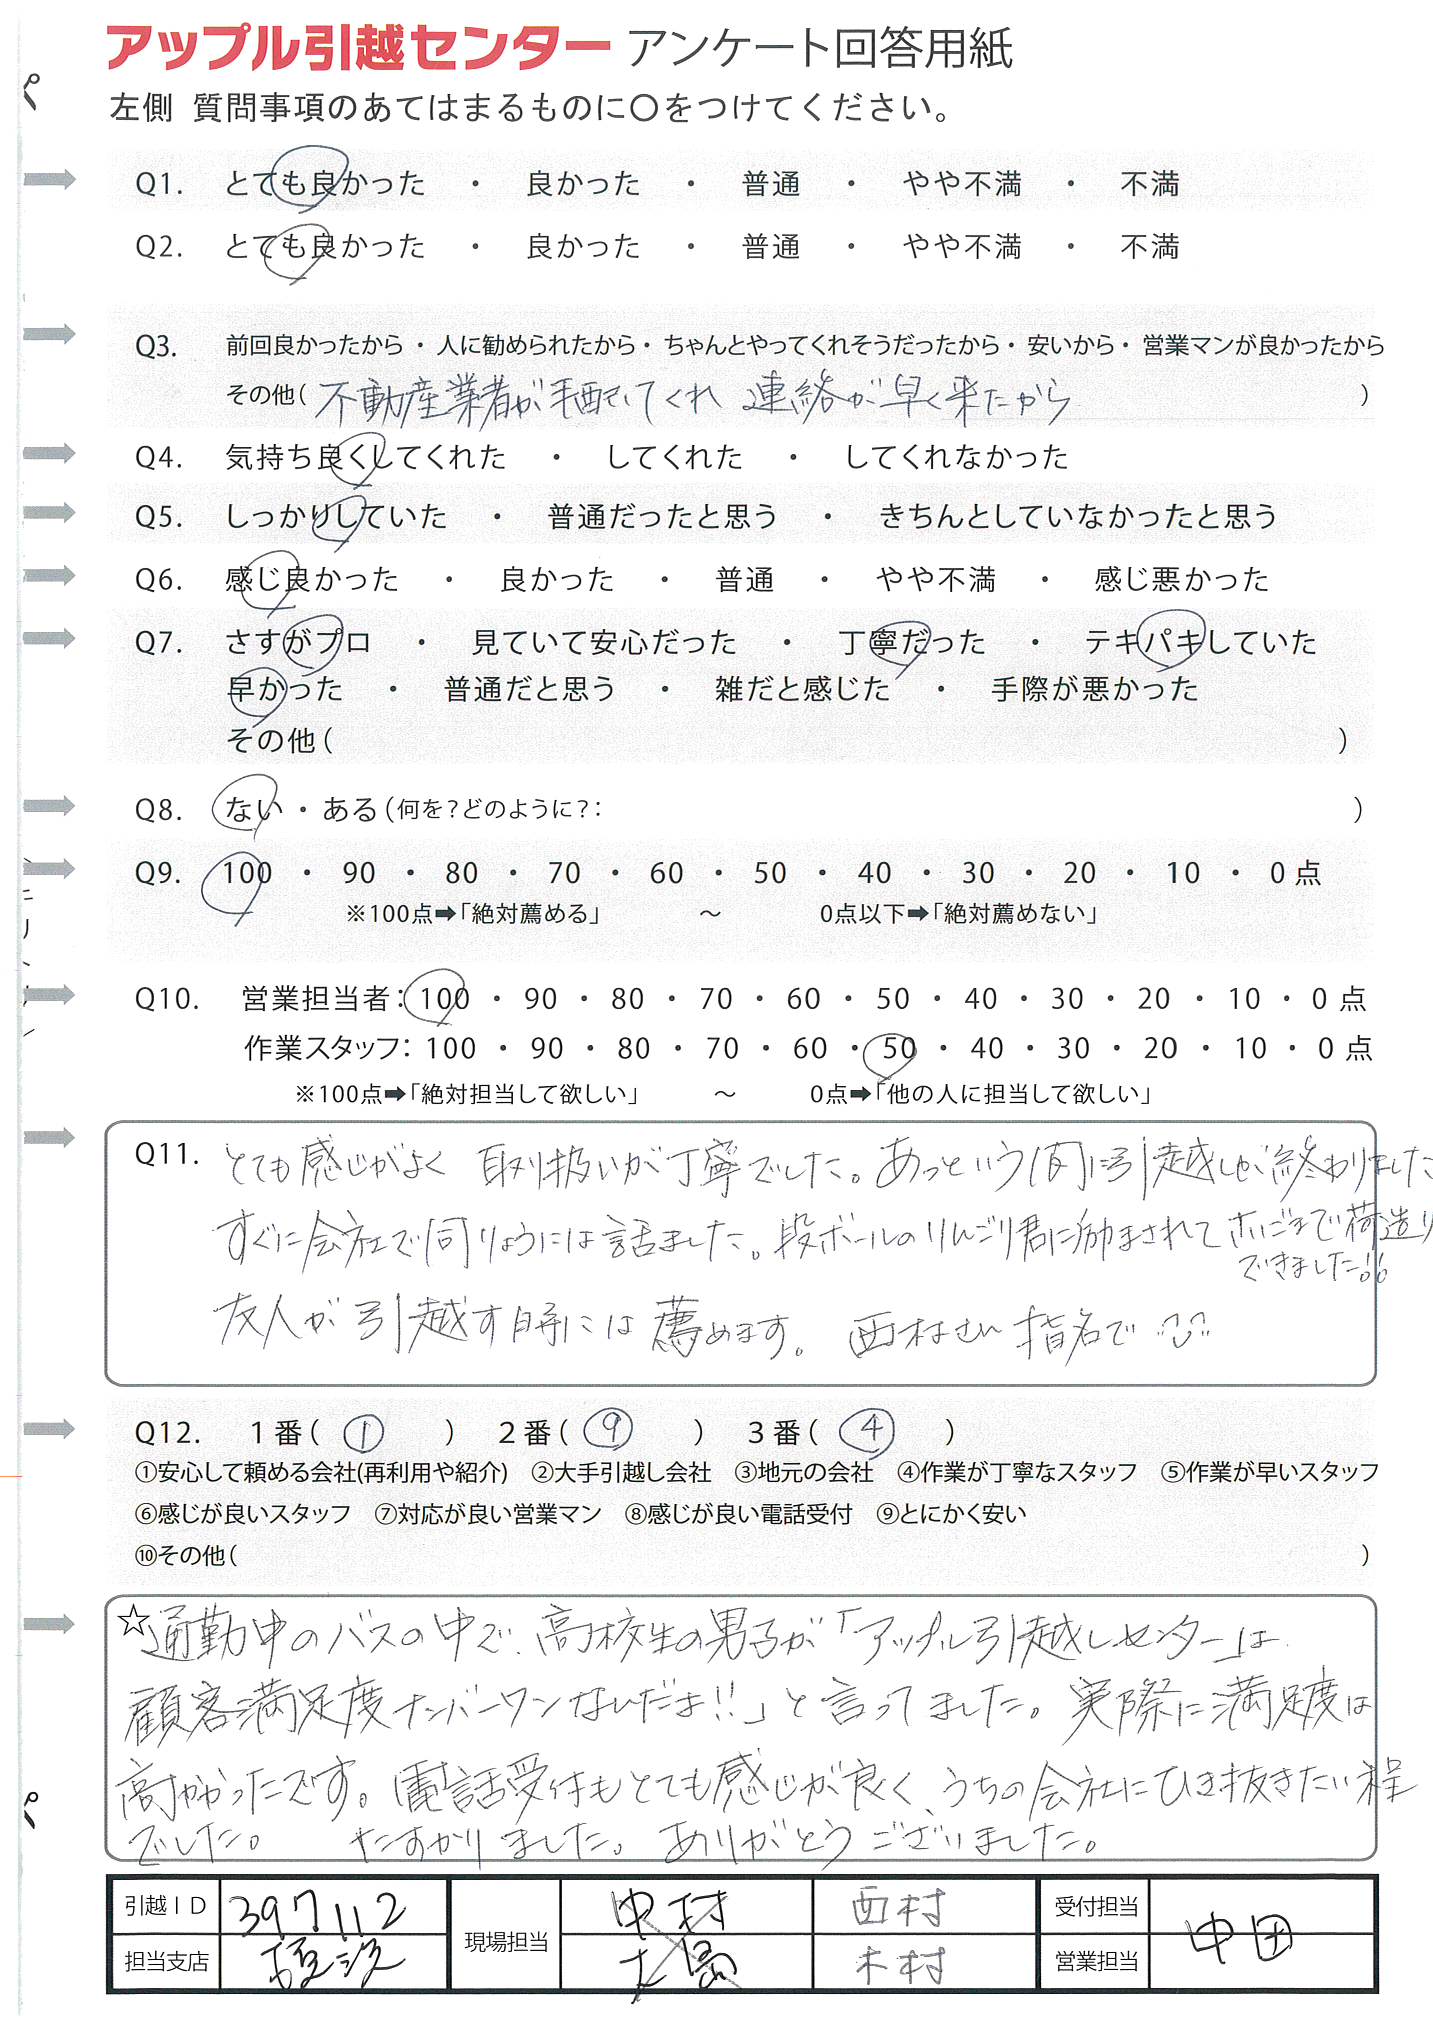 アップル引越センター アンケート回答用紙
左側 質問事項のあてはまるものに〇をつけてください。
Q1. とても良かった ・ 良かった ・ 普通 ・ やや不満 ・ 不満
Q2. とても良かった ・ 良かった ・ 普通 ・ やや不満 ・ 不満
Q3. 前回良かったから ・ 人に勧められたから ・ ちゃんとやってくれそうだったから ・ 安いから ・ 営業マンが良かったから
その他( 不動産業者が手配してくれ 連絡が早く来たから )
Q4. 気持ち良くしてくれた ・ してくれた ・ してくれなかった
Q5. しっかりしていた ・ 普通だったと思う ・ きちんとしていなかったと思う
Q6. 感じ良かった ・ 良かった ・ 普通 ・ やや不満 ・ 感じ悪かった
Q7. さすがプロ ・ 見ていて安心だった ・ 丁寧だった ・ テキパキしていた
早かった ・ 普通だと思う ・ 雑だと感じた ・ 手際が悪かった
その他( )
Q8. ない ・ ある(何を?どのように?: )
Q9. 100 ・ 90 ・ 80 ・ 70 ・ 60 ・ 50 ・ 40 ・ 30 ・ 20 ・ 10 ・ 0 点
※100点➡「絶対薦める」 ～ 0点以下➡「絶対薦めない」
Q10. 営業担当者: 100 ・ 90 ・ 80 ・ 70 ・ 60 ・ 50 ・ 40 ・ 30 ・ 20 ・ 10 ・ 0 点
作業スタッフ: 100 ・ 90 ・ 80 ・ 70 ・ 60 ・ 50 ・ 40 ・ 30 ・ 20 ・ 10 ・ 0 点
※100点➡「絶対担当して欲しい」 ～ 0点➡「他の人に担当して欲しい」
Q11. とても感じがよく 取り扱いが丁寧でした。あっという間に引越しが終わりました
すぐに会社で同りょうには話ました。段ボールのりんごり君に励まされて ホいごまで荷造り
できました!!
友人が引越す時には薦めます。 西村さん指名で
Q12. 1番( ① ) 2番( ⑨ ) 3番( ④ )
①安心して頼める会社(再利用や紹介) ②大手引越し会社 ③地元の会社 ④作業が丁寧なスタッフ ⑤作業が早いスタッフ
⑥感じが良いスタッフ ⑦対応が良い営業マン ⑧感じが良い電話受付 ⑨とにかく安い
⑩その他( )
☆通勤中のバスの中で、高校生の男子が「アップル引越しセンター」は
顧客満足度ナンバーワンなんだよ!!」と言ってました。実際に満足度は
高かかったです。電話受付もとても感じが良く、うちの会社にひき抜きたい程
でした。 たすかりました。ありがとうございました。
引越ID 397112 現場担当 中村 西村 受付担当 中田
担当支店 大島 木村 営業担当